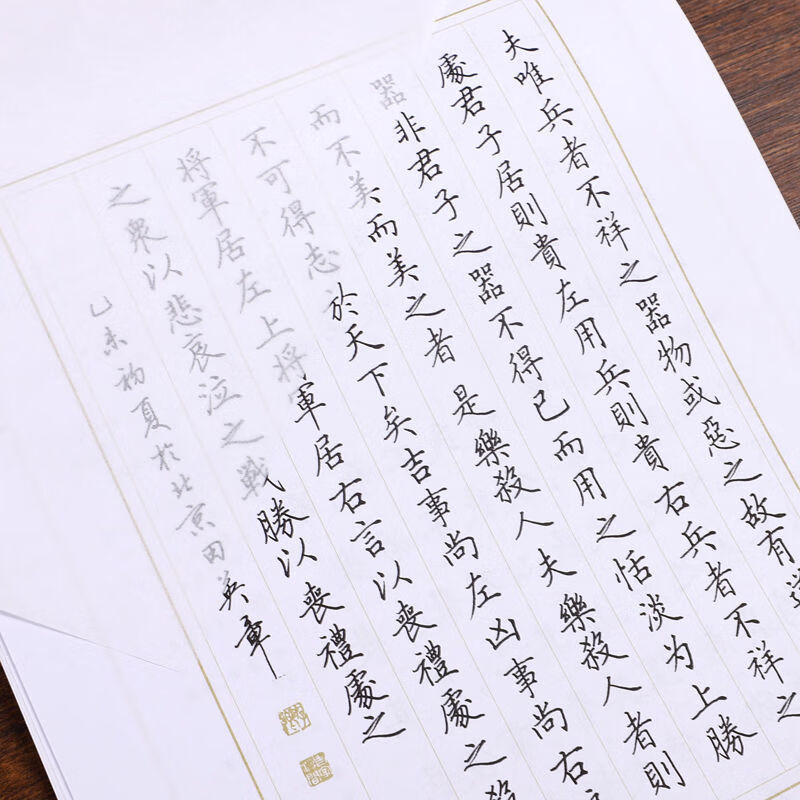 夫唯兵者不祥之器物或惡之故有
處君子居則貴左用兵則貴右兵者不祥之
器非君子之器不得已而用之恬淡为上勝
而不美而美之者是樂殺人夫樂殺人者則
不可得志於天下矣吉事尚左凶事尚右
将軍居左上将軍居右言以喪禮處之殺
之衆以悲哀泣之戰勝以喪禮處之
乙未初夏於北京田英章